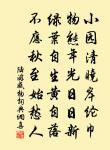 小园清晓岸纶巾
物态年光日日新
绿叶自生黄自落
不应秋至始愁人
陆游感物词典网书